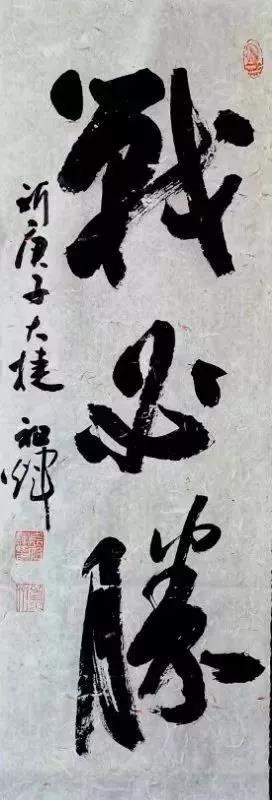 戰必勝
祈庚子大捷 祖輝